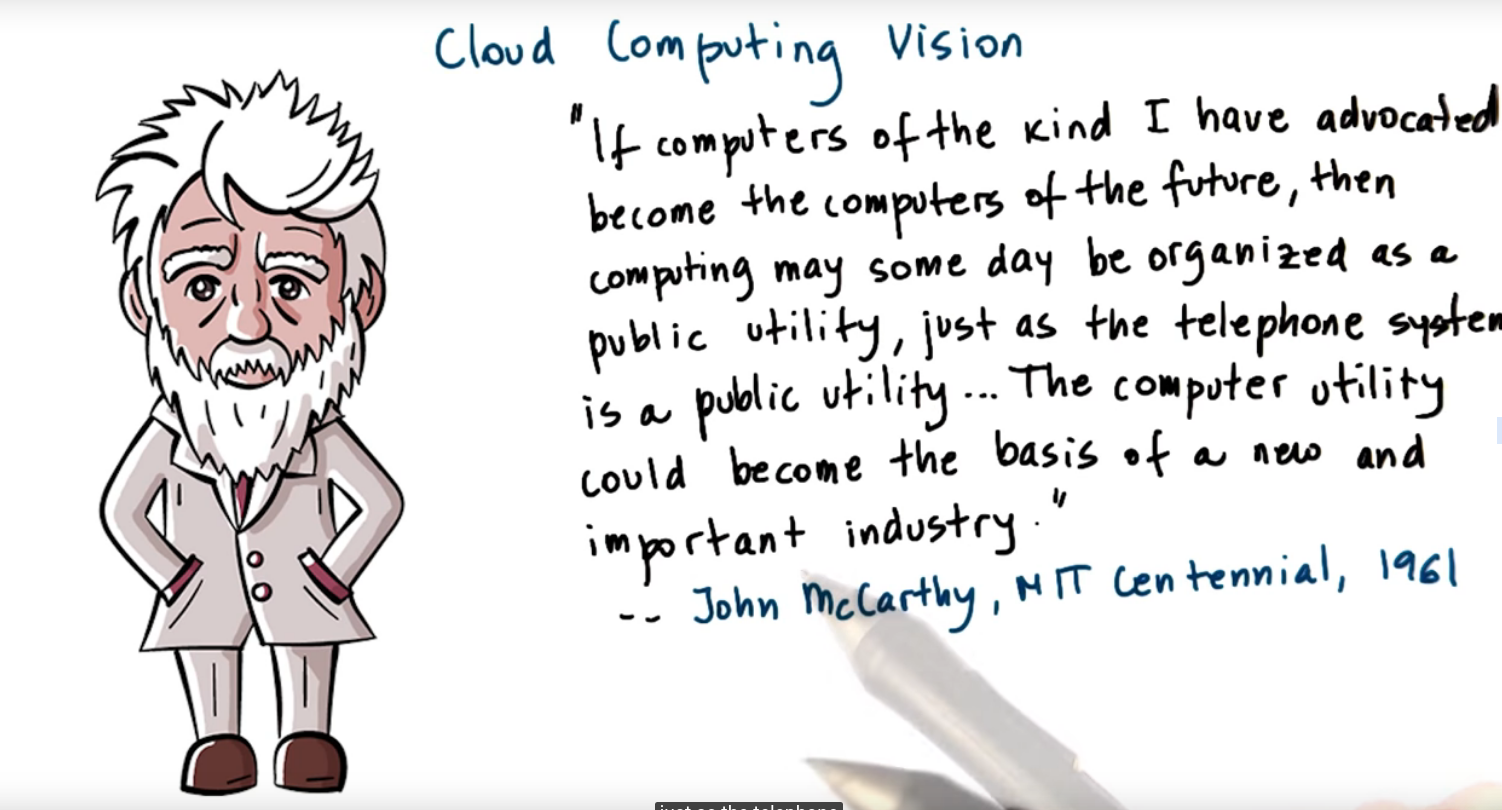 Cloud Computing Vision
"If computers of the kind I have advocated
become the computers of the future, then
computing may some day be organized as a
public utility, just as the telephone system
is a public utility... The computer utility
could become the basis of a new and
important industry."
-- John McCarthy, MIT Centennial, 1961
just as the telephone